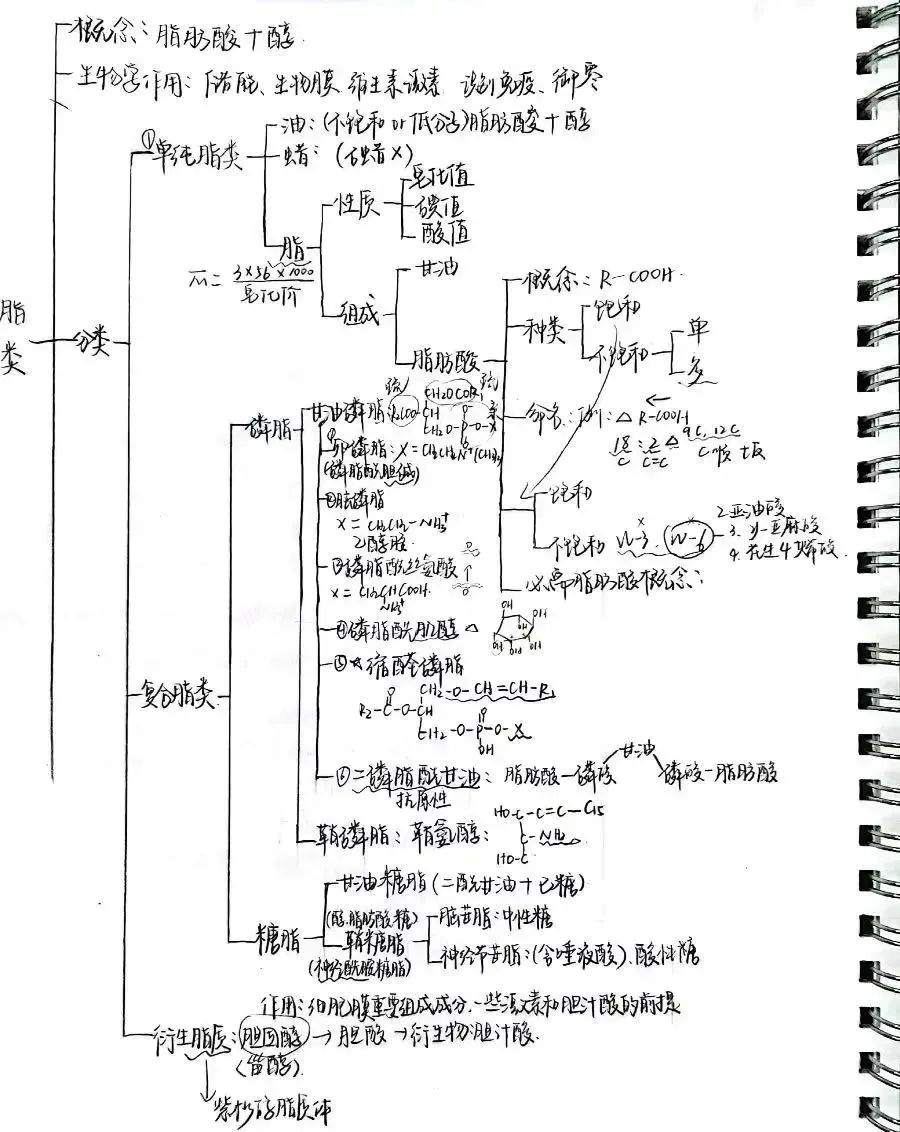 脂类
概念：脂肪酸+醇
生物学作用：储能、生物膜、维生素激素 识别免疫、御寒
分类
①单纯脂类
油：(不饱和or低分子)脂肪酸+醇
蜡：(石蜡X)
脂
性质
皂化值
碘值
酸值
M = 3×56×1000
皂化价
组成
甘油
脂肪酸
概念：R-COOH.
种类
饱和
不饱和
单
多
命名：例：△ R-COOH
18:2△ 9c,12c
C C=C C顺 t反
饱和
不饱和 W-3. W-6
2.亚油酸
3. γ-亚麻酸
4. 花生4烯酸.
必需脂肪酸概念：
复合脂类
磷脂
甘油磷脂：
CH2OCOR1
R2COO-CH
CH2O-P-O-X
①卵磷脂：X=CH2CH2N+(CH3)3
(磷脂酰胆碱)
②脑磷脂
X=CH2CH2-NH3+
乙醇胺
③磷脂酰丝氨酸
X=CH2CHCOOH.
NH3+
④磷脂酰肌醇△
OH
OH
OH
OH
OH
⑤☆缩醛磷脂
CH2-O-CH=CH-R1
O
R2-C-O-CH
O
CH2-O-P-O-X
OH
二磷脂酰甘油：脂肪酸—磷酸 甘油 磷酸—脂肪酸
抗原性
鞘磷脂：鞘氨醇：
HO-C-C=C-C15
C-NH2
HO-C
糖脂
甘油糖脂(二酰甘油+己糖)
(醇.脂肪酸.糖)
鞘糖脂
(神经酰胺糖脂)
脑苷脂：中性糖
神经节苷脂：(含唾液酸).酸性糖
作用：细胞膜重要组成成分.一些激素和胆汁酸的前提
衍生脂质：胆固醇→胆酸→衍生物胆汁酸.
(甾醇).
紫杉醇脂质体